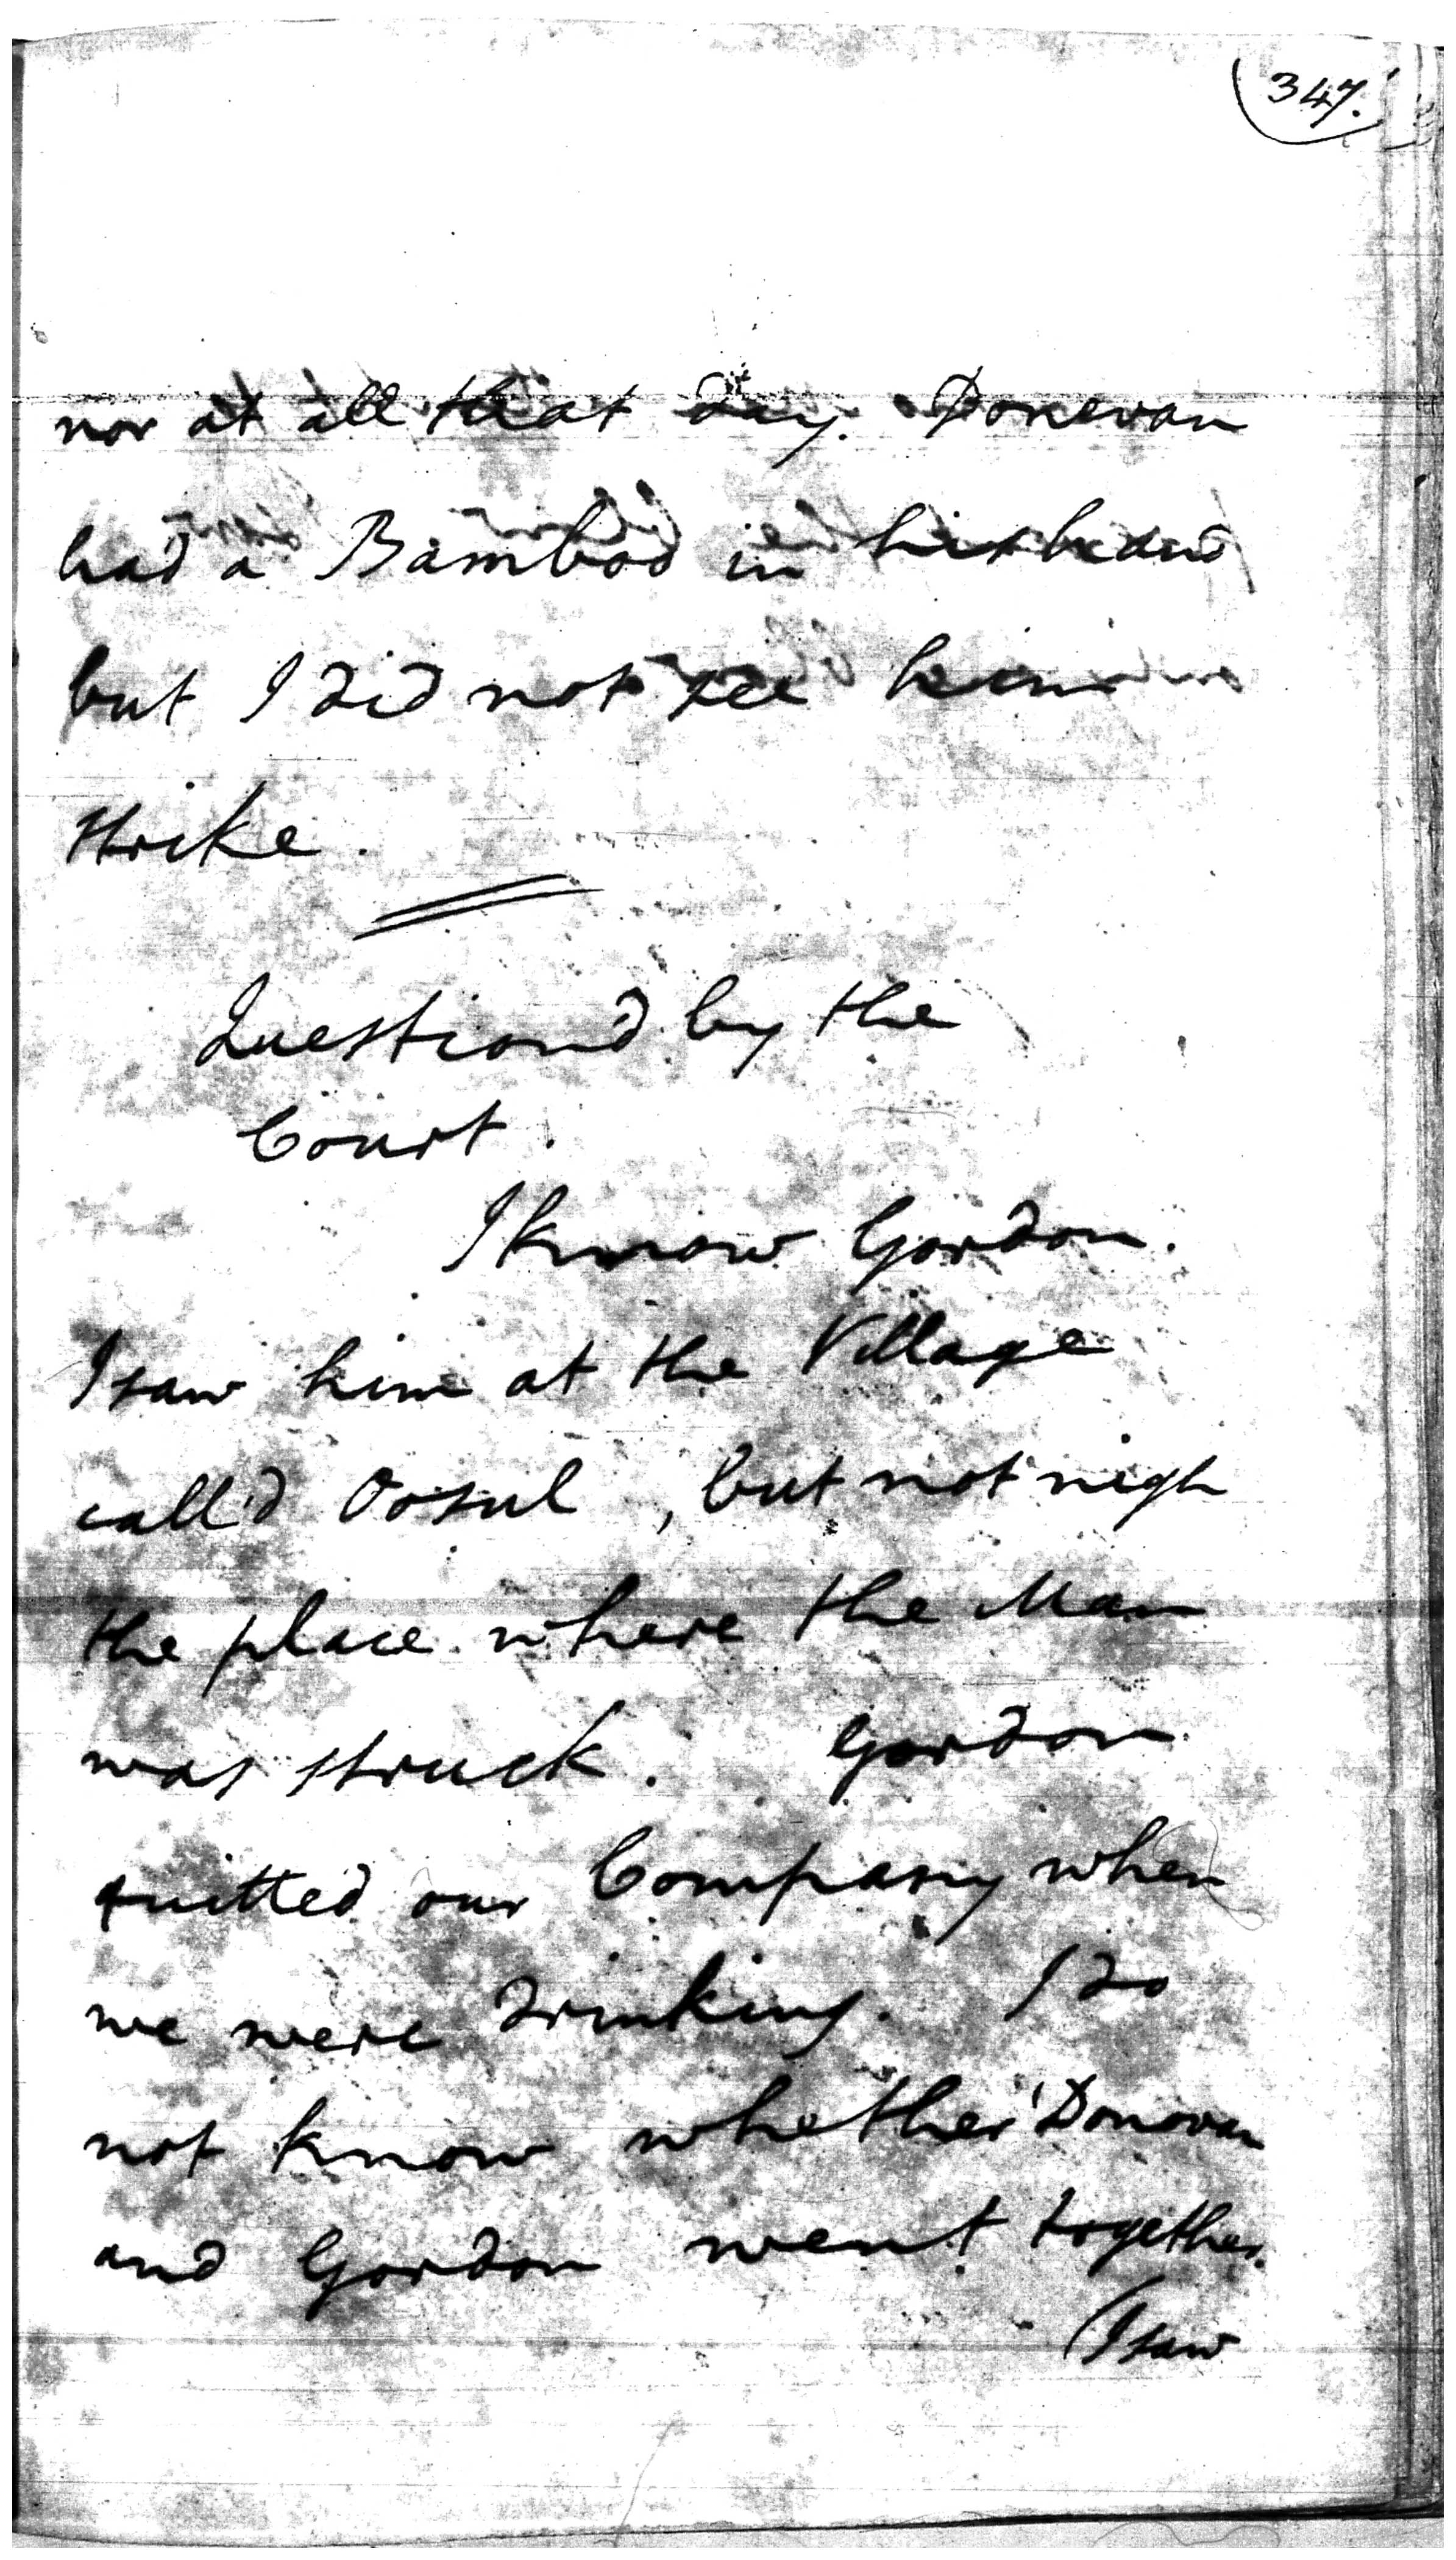 347.
nor at all that day. Donevan
had a Bamboo in his hand
but I did not see him
strike.
Question'd by the
Court.
I know Gordon.
I saw him at the Village
call'd Oosul, but not nigh
the place where the Man
was struck. Gordon
quitted our Company when
we were drinking. I do
not know whether Donovan
and Gordon went together.
(I saw